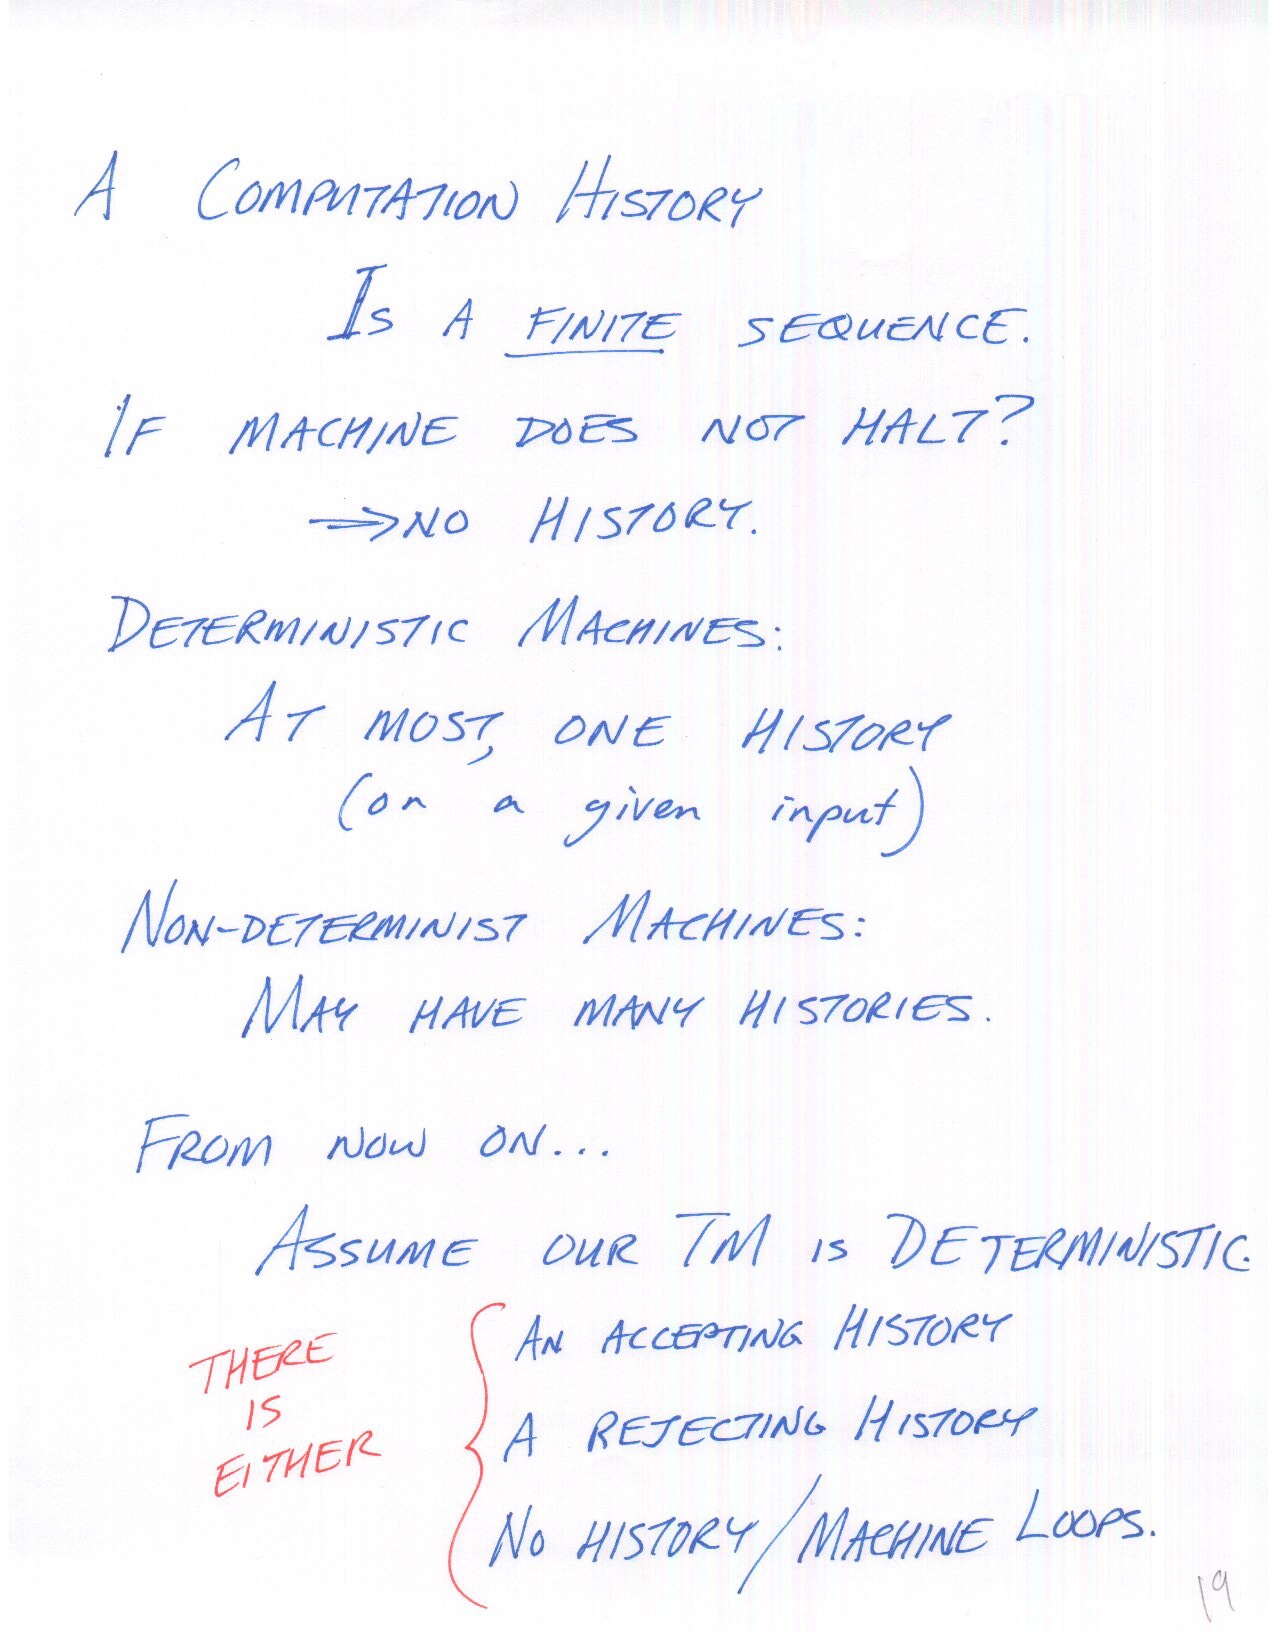 A COMPUTATION HISTORY
IS A FINITE SEQUENCE.
IF MACHINE DOES NOT HALT?
⇒ NO HISTORY.
DETERMINISTIC MACHINES:
AT MOST, ONE HISTORY
(on a given input)
NON-DETERMINIST MACHINES:
MAY HAVE MANY HISTORIES.
FROM NOW ON...
ASSUME OUR TM IS DETERMINISTIC.
THERE
IS
EITHER
AN ACCEPTING HISTORY
A REJECTING HISTORY
NO HISTORY/MACHINE LOOPS.
19